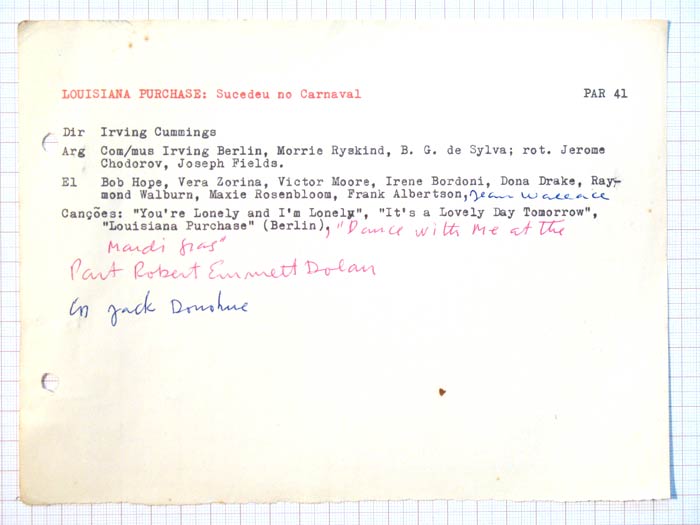 LOUISIANA PURCHASE: Sucedeu no Carnaval PAR 41
Dir Irving Cummings
Arg Com/mus Irving Berlin, Morrie Ryskind, B. G. de Sylva; rot. Jerome
Chodorov, Joseph Fields.
El Bob Hope, Vera Zorina, Victor Moore, Irene Bordoni, Dona Drake, Ray-
mond Walburn, Maxie Rosenbloom, Frank Albertson, Jean Wallace
Canções: "You're Lonely and I'm Lonely", "It's a Lovely Day Tomorrow",
"Louisiana Purchase" (Berlin), "Dance with Me at the
Mardi Gras"
Part Robert Emmett Dolan
Jack Donohue